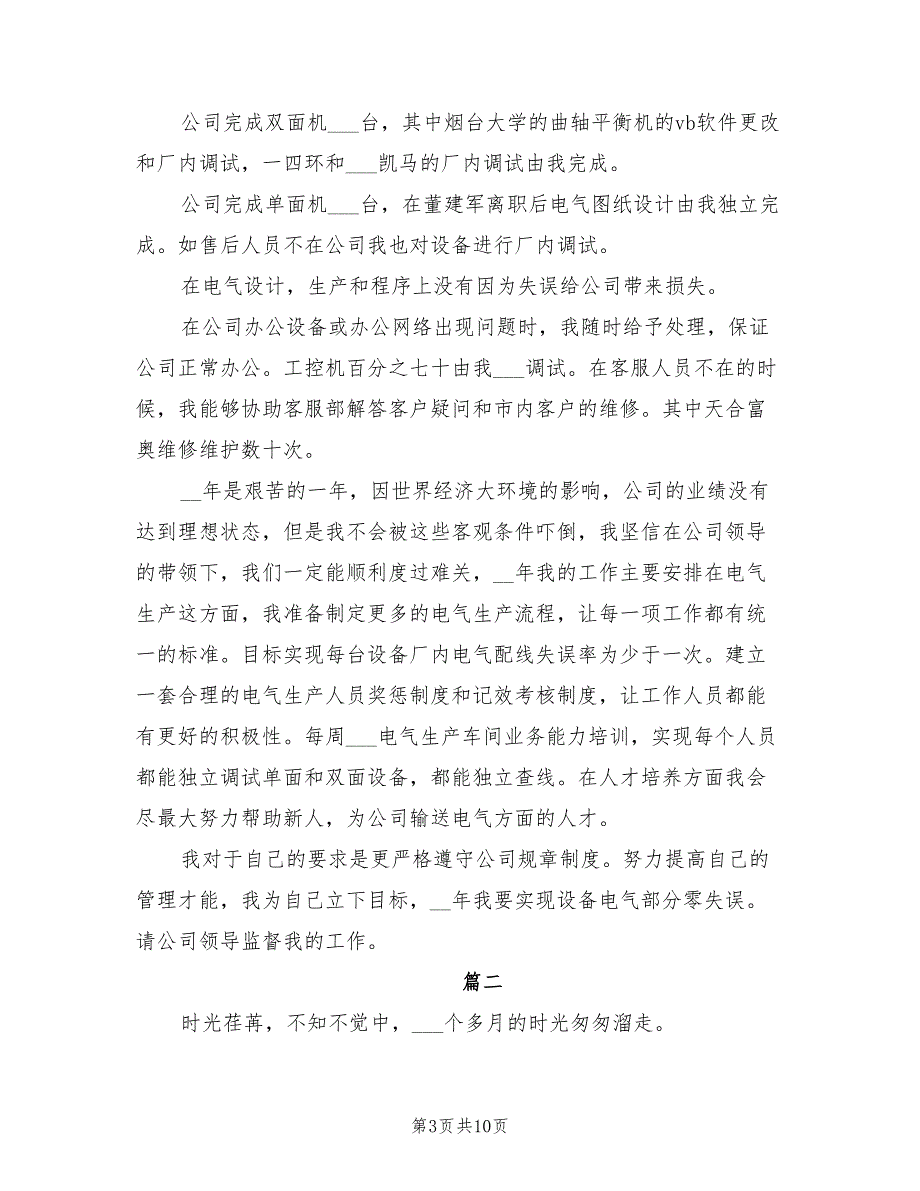 公司完成双面机___台，其中烟台大学的曲轴平衡机的vb软件更改
和厂内调试，一四环和___凯马的厂内调试由我完成。
公司完成单面机___台，在董建军离职后电气图纸设计由我独立完
成。如售后人员不在公司我也对设备进行厂内调试。
在电气设计，生产和程序上没有因为失误给公司带来损失。
在公司办公设备或办公网络出现问题时，我随时给予处理，保证
公司正常办公。工控机百分之七十由我___调试。在客服人员不在的时
候，我能够协助客服部解答客户疑问和市内客户的维修。其中天合富
奥维修维护数十次。
__年是艰苦的一年，因世界经济大环境的影响，公司的业绩没有
达到理想状态，但是我不会被这些客观条件吓倒，我坚信在公司领导
的带领下，我们一定能顺利度过难关，__年我的工作主要安排在电气
生产这方面，我准备制定更多的电气生产流程，让每一项工作都有统
一的标准。目标实现每台设备厂内电气配线失误率为少于一次。建立
一套合理的电气生产人员奖惩制度和记效考核制度，让工作人员都能
有更好的积极性。每周___电气生产车间业务能力培训，实现每个人员
都能独立调试单面和双面设备，都能独立查线。在人才培养方面我会
尽最大努力帮助新人，为公司输送电气方面的人才。
我对于自己的要求是更严格遵守公司规章制度。努力提高自己的
管理才能，我为自己立下目标，__年我要实现设备电气部分零失误。
请公司领导监督我的工作。
篇二
时光荏苒，不知不觉中，___个多月的时光匆匆溜走。
第3页共10页